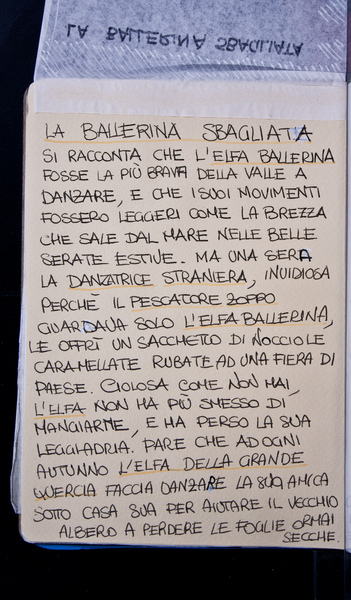 LA BALLERINA SBAGLIATA
LA BALLERINA SBAGLIATA
SI RACCONTA CHE L'ELFA BALLERINA
FOSSE LA PIÙ BRAVA DELLA VALLE A
DANZARE, E CHE I SUOI MOVIMENTI
FOSSERO LEGGERI COME LA BREZZA
CHE SALE DAL MARE NELLE BELLE
SERATE ESTIVE. MA UNA SERA
LA DANZATRICE STRANIERA, INVIDIOSA
PERCHÈ IL PESCATORE ZOPPO
GUARDAVA SOLO L'ELFA BALLERINA,
LE OFFRÌ UN SACCHETTO DI NOCCIOLE
CARAMELLATE RUBATE AD UNA FIERA DI
PAESE. GOLOSA COME NON MAI,
L'ELFA NON HA PIÙ SMESSO DI
MANGIARNE, E HA PERSO LA SUA
LEGGIADRIA. PARE CHE AD OGNI
AUTUNNO L'ELFA DELLA GRANDE
QUERCIA FACCIA DANZARE LA SUA AMICA
SOTTO CASA SUA PER AIUTARE IL VECCHIO
ALBERO A PERDERE LE FOGLIE ORMAI
SECCHE.